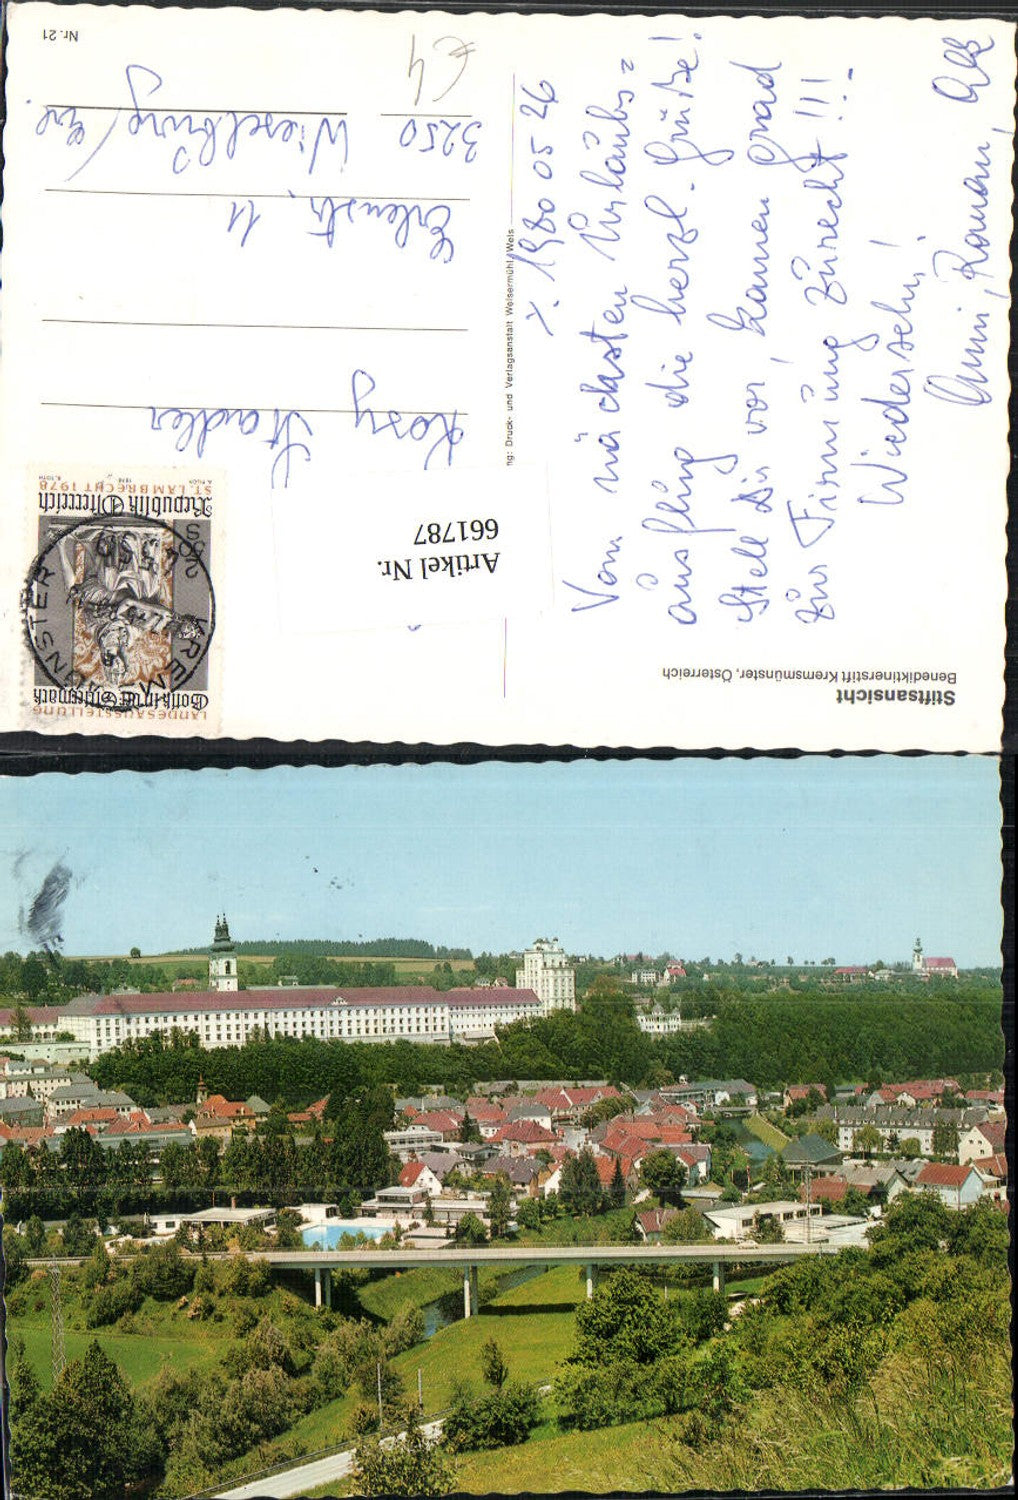 Stiftsansicht
Benediktinerstift Kremsmünster, Österreich
1980 05 26
Vom nächsten Urlaubs=
ausflug die herzl. Grüße!
Stell Dir vor, kamen grad
zur Firmung zurecht!!!-
Wiedersehn!
Anni, Roman,
LANDESAUSSTELLUNG
Gotik in der Steiermark
Republik Österreich
ST. LAMBRECHT 1978
KREMSMÜNSTER
Artikel Nr.
661787
Rosy Stadler
Erlenstr. 11
3250 Wieselburg/Erl.
€ 4
Nr. 21
Druck- und Verlagsanstalt Welsermühl, Wels